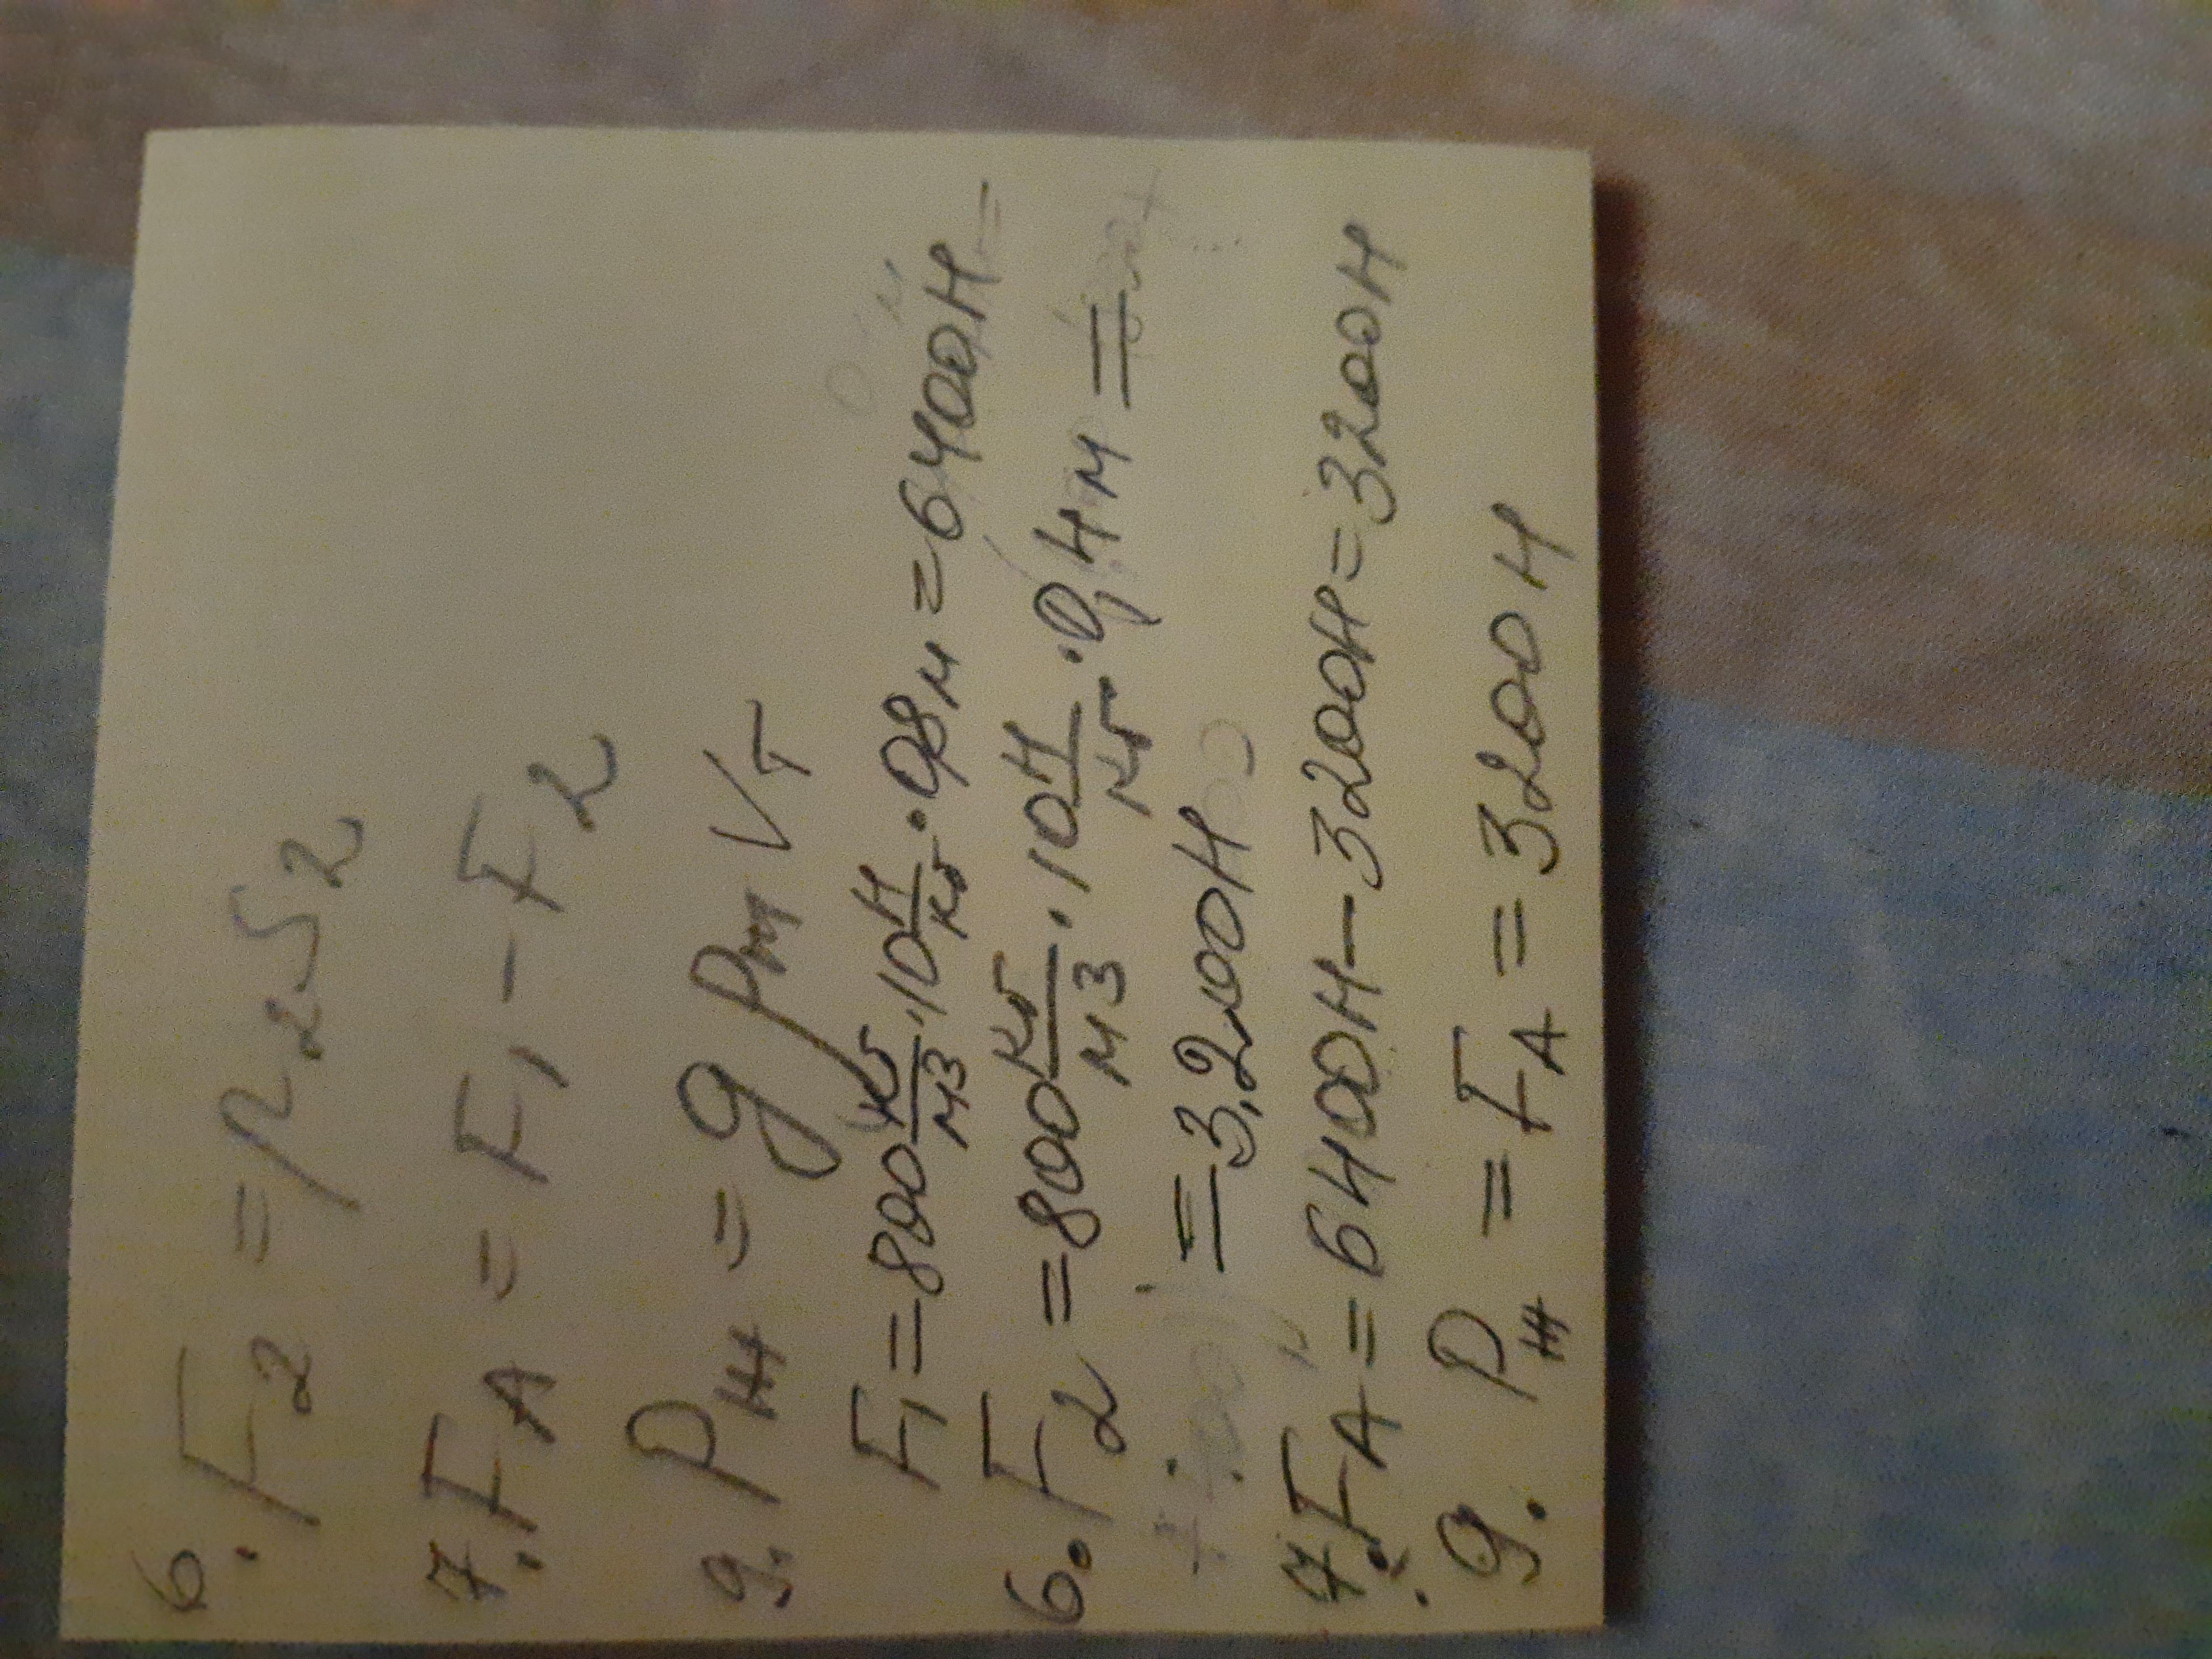 6. F₂ = p₂S₂
7. F_A = F₁ - F₂
9. P_ж = gρ_ж V_т
F₁ = 800 кг/м3 · 10 Н/кг · 0,8 м = 6400Н =
6. F₂ = 800 кг/м3 · 10 Н/кг · 0,4 м =
= 3,200Н
7. F_A = 6400Н - 3200Н = 3200Н
9. P_ж = F_A = 3200 Н